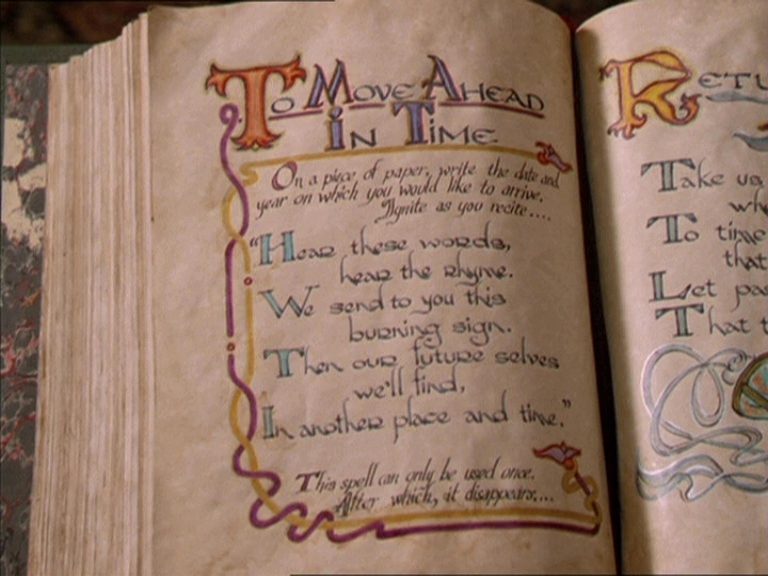 To Move Ahead
In Time
On a piece of paper, write the date and
year on which you would like to arrive.
Ignite as you recite....
"Hear these words,
hear the rhyme.
We send to you this
burning sign.
Then our future selves
we'll find,
In another place and time."
This spell can only be used once.
After which, it disappears....
Retu
Take us
wh
To time
that
Let pas
That t